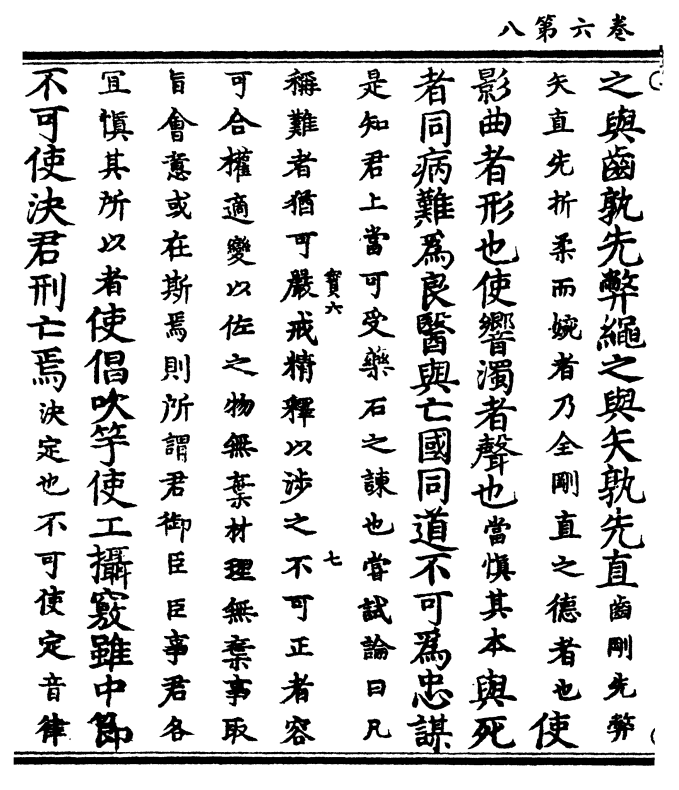 卷六第八
之與齒孰先弊繩之與矢孰先直齒剛先弊
矢直先折柔而婉者乃全剛直之德者也使
影曲者形也使響濁者聲也當慎其本與死
者同病難爲良醫與亡國同道不可爲忠謀
是知君上當可受藥石之諫也嘗試論曰凡
寶六 七
稱難者猶可嚴戒精釋以涉之不可正者容
可合權適變以佐之物無棄材理無棄事取
旨會意或在斯焉則所謂君御臣臣事君各
冝慎其所以者使倡吹竽使工攝竅雖中節
不可使決君刑亡焉決定也不可使定音律